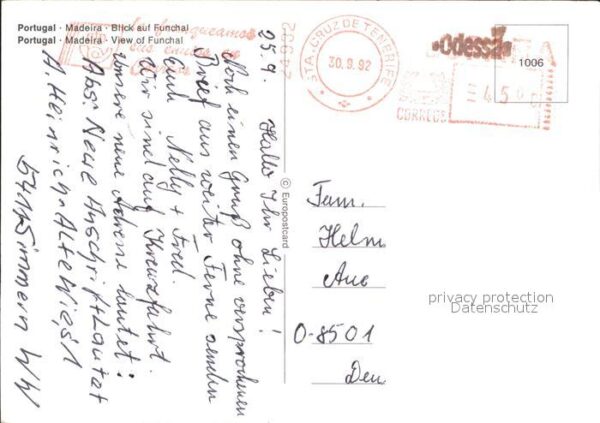 Portugal · Madeira · Blick auf Funchal
Portugal · Madeira · View of Funchal
25.9.
Hallo Ihr Lieben!
Noch einen Gruß ohne versprochenen
Brief aus weiter Ferne senden
Euch Nelly + Fred.
Wir sind auf Kreuzfahrt.
unsere neue Adresse lautet:
Abs: Neue Anschrift Lautat
A. Heinrich · Alte Wies 1
5411 Simmern WW
© Europostcard
24902
STA. CRUZ DE TENERIFE
30.9.92
CORREOS
Odessa
1006
Fam.
Helm
Aue
O-8501
Deu
privacy protection
Datenschutz